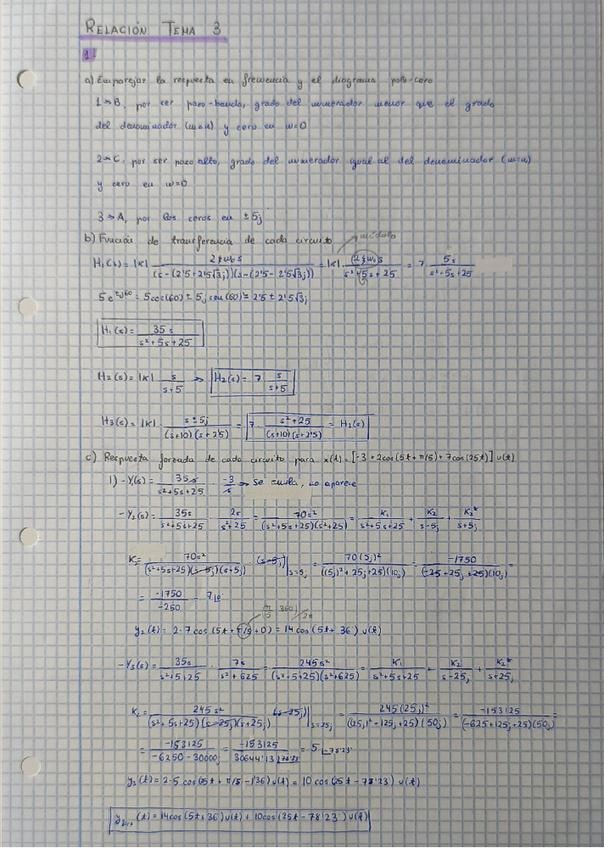 RELACIÓN TEMA 3
1.
a) Emparejar la respuesta en frecuencia y el diagrama polo-cero
1→B, por ser paso-banda, grado del numerador menor que el grado
del denominador (m<n) y cero en w=0
2→C, por ser paso alto, grado del numerador igual al del denominador (m=n)
y cero en w=0
3→A, por los ceros en ±5j
b) Función de transferencia de cada circuito
módulo
H₁(s) = |K| 2ξw₀s / (s-(2'5+2'5√3j))(s-(2'5-2'5√3j)) = |K| (2ξw₀)s / s²+5s+25 = 7 5s / s²+5s+25
5e^±j60 = 5cos(60) ± 5j sen(60) = 2'5 ± 2'5√3j
H₁(s) = 35s / s²+5s+25
H₂(s) = |K| s / s+5 → H₂(s) = 7 s / s+5
H₃(s) = |K| s±5j / (s+10)(s+2'5) = 7 s²+25 / (s+10)(s+2'5) = H₃(s)
c) Respuesta forzada de cada circuito para x(t) = [-3 + 2cos(5t+π/5) + 7cos(25t)] u(t)
1) - Y₁(s) = 35s / s²+5s+25 · -3 / s → Se anula, no aparece
- Y₂(s) = 35s / s²+5s+25 · 2s / s²+25 = 70s² / (s²+5s+25)(s²+25) = K₁ / s²+5s+25 + K₂ / s-5j + K₂* / s+5j
K₂ = 70s² / (s²+5s+25)(s-5j)(s+5j) · (s-5j)|s=5j = 70(5j)² / ((5j)²+25j+25)(10j) = -1750 / (-25+25j+25)(10j) =
= -1750 / -250 = 7|0°
π/5 · 360/2π
y₂(t) = 2·7 cos(5t+π/5+0) = 14cos(5t+36) u(t)
- Y₃(s) = 35s / s²+5s+25 · 7s / s²+625 = 245s² / (s²+5s+25)(s²+625) = K₁ / s²+5s+25 + K₂ / s-25j + K₂* / s+25j
K₂ = 245s² / (s²+5s+25)(s-25j)(s+25j) (s-25j)|s=25j = 245(25j)² / ((25j)²+125j+25)(50j) = -153125 / (-625+125j+25)(50j) =
= -153125 / -6250-30000j = -153125 / 30644'13 |78'23 = 5 |-78'23
y₃(t) = 2·5 cos(25t + π/5 - 1'36) u(t) = 10cos(25t - 78'23) u(t)
(t) = 14cos(5t+36) u(t) + 10cos(25t - 78'23) u(t)